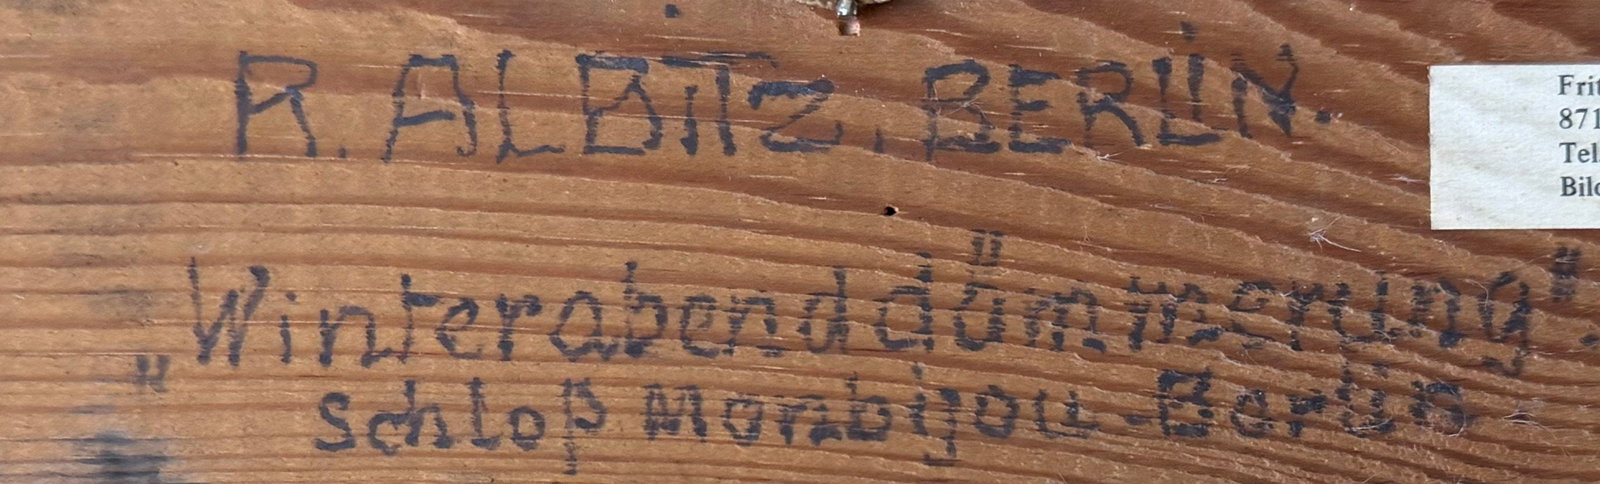 R. ALBITZ, BERLIN.
„Winterabenddämmerung".
Schloß Monbijou - Berlin
Frit
871
Tel.
Bild